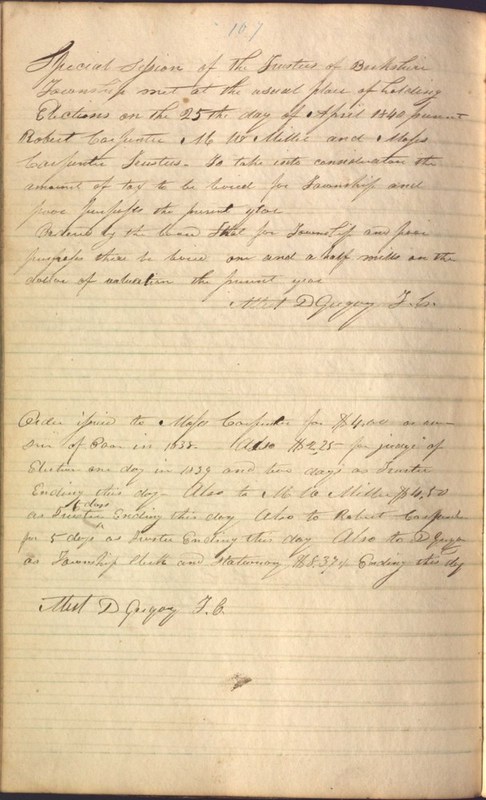 107
Special Session of the Trustees of Berkshire
Township met at the usual place of holding
Elections on the 25th day of April 1840 present
Robert Carpenter M W Miller and Moses
Carpenter Trustees. To take into consideration the
amount of tax to be levied for Township and
poor purposes the present year
Ordered by the Board that for Township and poor
purposes there be levied one and a half mills on the
dollar of valuation the present year
Attest D Gregory T. Ck.
Order issued to Moses Carpenter for $4.00 as
of Poor in 1838. Also $2,25 for judge of
Election one day in 1839 and two days as Trustee
Ending this day Also to M W Miller $4,50
as Trustee 6 days Ending this day Also to Robert Carpenter
for 5 days as Trustee Ending this day Also to D Gregory
as Township Clerk and Stationary Ending this day
Attest D Gregory T. C.